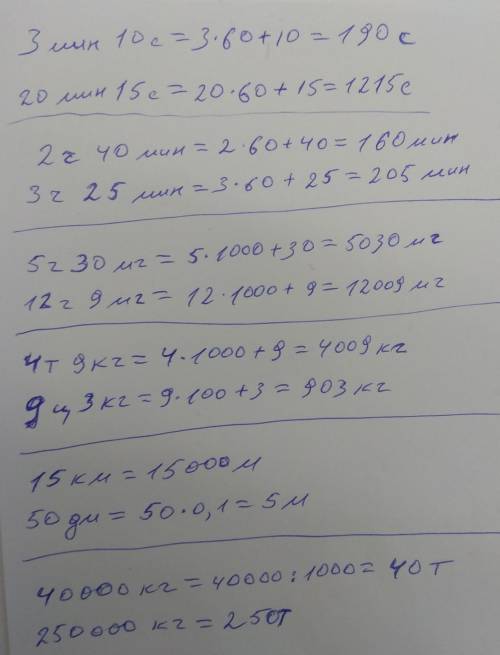 3 мин 10 с = 3·60+10 = 190 с
20 мин 15 с = 20·60+15 = 1215 с
2 ч 40 мин = 2·60+40 = 160 мин
3 ч 25 мин = 3·60+25 = 205 мин
5 г 30 мг = 5·1000+30 = 5030 мг
12 г 9 мг = 12·1000+9 = 12009 мг
4 т 9 кг = 4·1000+9 = 4009 кг
9 ц 3 кг = 9·100+3 = 903 кг
15 км = 15000 м
50 дм = 50·0,1 = 5 м
40000 кг = 40000:1000 = 40 т
250000 кг = 250 т